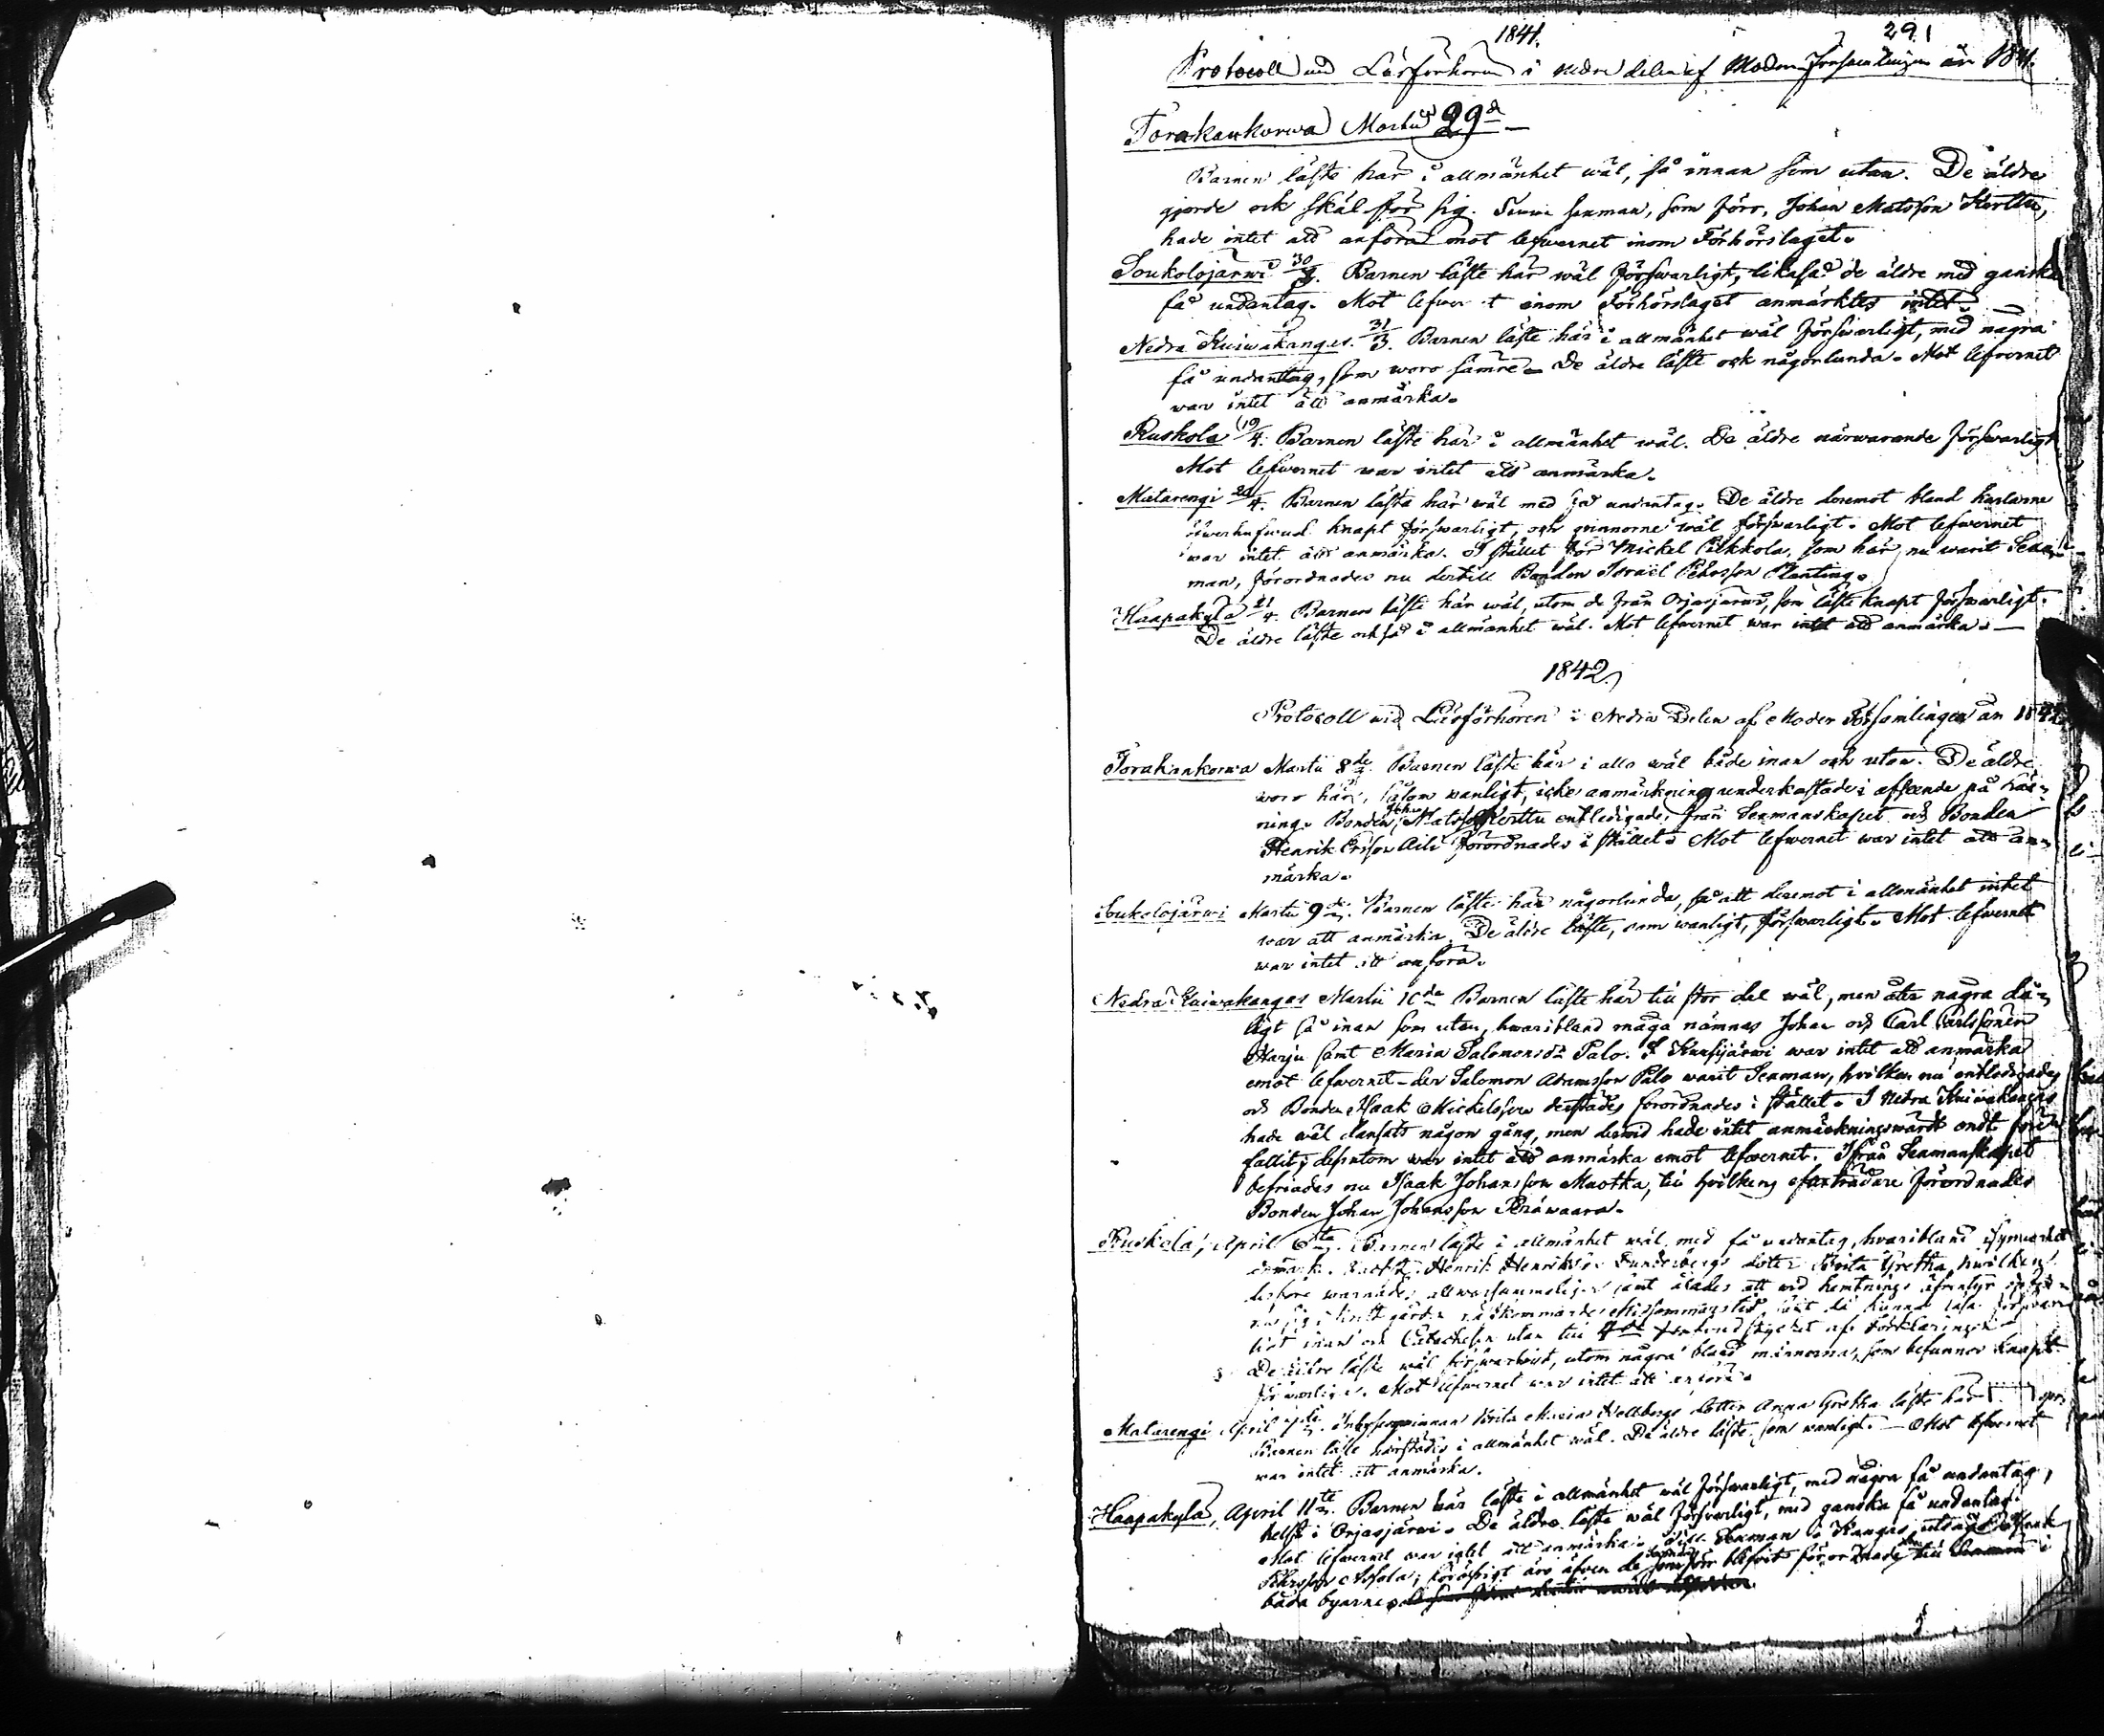 1841.
291
Protocoll wid Läsförhören i nedre delen af Moderförsamlingen år 1841.
Torakankorwa Martii 29de
Barnen läste här i allmänhet wäl, så innan som utan. De äldre
gjorde ock skäl för sig. Sexman, som förr, Johan Matsson Kerttu,
hade intet att anföra mot lefwernet inom Förhörslaget.
Soukolojärwi 30/3. Barnen läste här wäl försvarligt, likaså de äldre med ganska
få undantag. Mot lefwer t inom Förhörslaget anmärktes intet.
Nedra Kuiwakangas. 31/3. Barnen läste här i allmänhet wäl försvarligt, med några
få undantag, som woro sämre. De äldre läste ock någorlunda. Mot lefvernet
war intet att anmärka.
Ruskola 19/4. Barnen läste här i allmänhet wäl. De äldre närwarande försvarligt
Mot lefwernet war intet att anmärka.
Matarengi 20/4. Barnen läste här wäl med få undantag. De äldre deremot bland karlarne
öfwerhufwud knapt försvarligt, och qvinnorne wäl försvarligt. Mot lefwernet
war intet att anmärka. I stället för Mickel Pikkola, som här nu warit Sex-
man, förordnades nu dertill Bonden Israel Pehrsson Planting.
Haapakylä 21/4. Barnen läste här wäl, utom de från Orjasjärwi, som läste knapt försvarligt.
De äldre läste också i allmänhet wäl. Mot lefwernet war intet att anmärka.
1842.
Protocoll wid Läsförhören i Nedra Delen af Moder Församlingen år 1842.
Torakankorwa Martii 8de. Barnen läste här i allo wäl både inan och utan. De äldre
woro här, såsom wanligt, icke anmärkning underkastade i afseende på Läs-
ning. Bonden Johan Matsson Kerttu entledigades från Sexmanskapet och Bonden
Henrik Ersson Aili förordnades i stället. Mot lefwernet war intet att an-
märka.
Soukolojärwi Martii 9de. Barnen läste här någorlunda, så att deremot i allmänhet intet
war att anmärka. De äldre läste, som wanligt, försvarligt. Mot lefwernet
war intet att anföra.
Nedra Kuiwakangas Martii 10de Barnen läste här till stor del wäl, men åter några då-
ligt så inan som utan, hwaribland måga nämnas Johan och Carl Carlssöner
Harju samt Maria Salomonsdr Palo. I Kuusijärwi war intet att anmärka
emot lefwernet – der Salomon Adamsson Palo warit Sexman, hvilken nu entledigades
och Bonden Isaak Mickelsson derstädes förordnades i stället. I Nedra Kuiwakangas
hade wäl dansats någon gång, men derwid hade intet anmärkningswärdt ondt före-
fallit; dessutom war intet att anmärka emot lefwernet. Ifrån Sexmanskapet
befriades nu Isaak Johansson Muotka, till hvilkens efterträdare förordnades
Bonden Johan Johansson Perävaara.
Ruskola, April 6te. Barnen läste i allmänhet wäl med få undantag, hvaribland i synnerhet
Henrik Henriksson Dunderbergs dotter Brita Gretha, hwilken
derföre warnades allwarsammeligen samt ålades att wid hemtnings äfwentyr
sig i Prestgården nästkommande Midsommarstid, att då kunna läsa försvar-
ligt inan och Catechesen utan till 4de stycket af Förklaringen.
De äldre läste wäl försvarligt, utom några bland männerna, som befunnos knapt
försvarliga. Mot lefwernet war intet att anföra.
Matarengi April 7de. Inhysesqwinnan Brita Maria Wellbergs dotter Anna Gretha läste här
Barnen läste härstädes i allmänhet wäl. De äldre läste som wanligt. – Mot lefwernet
war intet att anmärka.
Haapakylä, April 11te. Barnen här läste i allmänhet wäl försvarligt, med några få undantag,
helst i Orjasjärwi. De äldre läste wäl försvarligt, med ganska få undantag.
Mot lefwernet war intet att anmärka. Till Sexman i Kangas utsågs Isaak
Pehrsson Assala; för öfrigt äro äfven de som förr blifvit förordnade till Sexmän i
båda byarne.